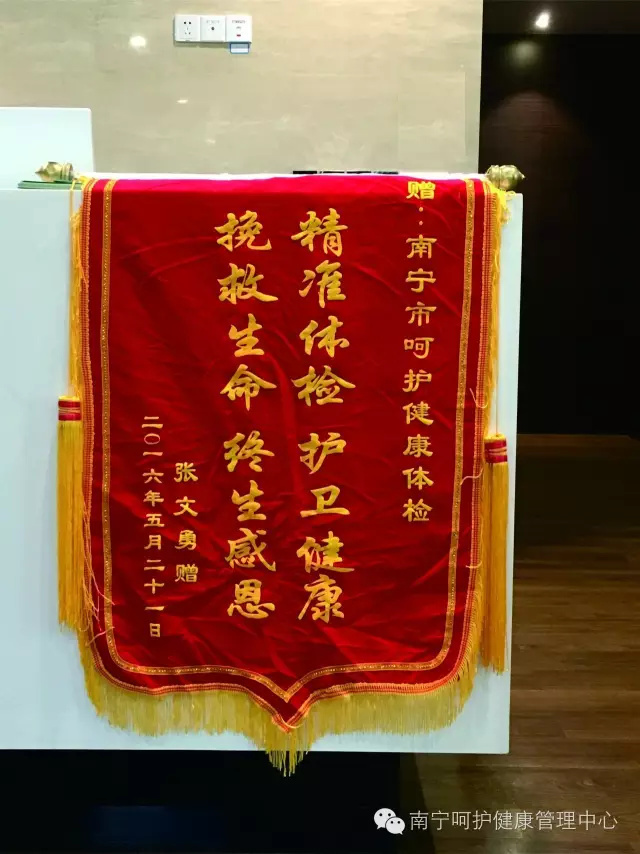 赠：南宁市呵护健康体检
精准体检 护卫健康
挽救生命 终生感恩
张文勇赠
二〇一六年五月二十一日
南宁呵护健康管理中心